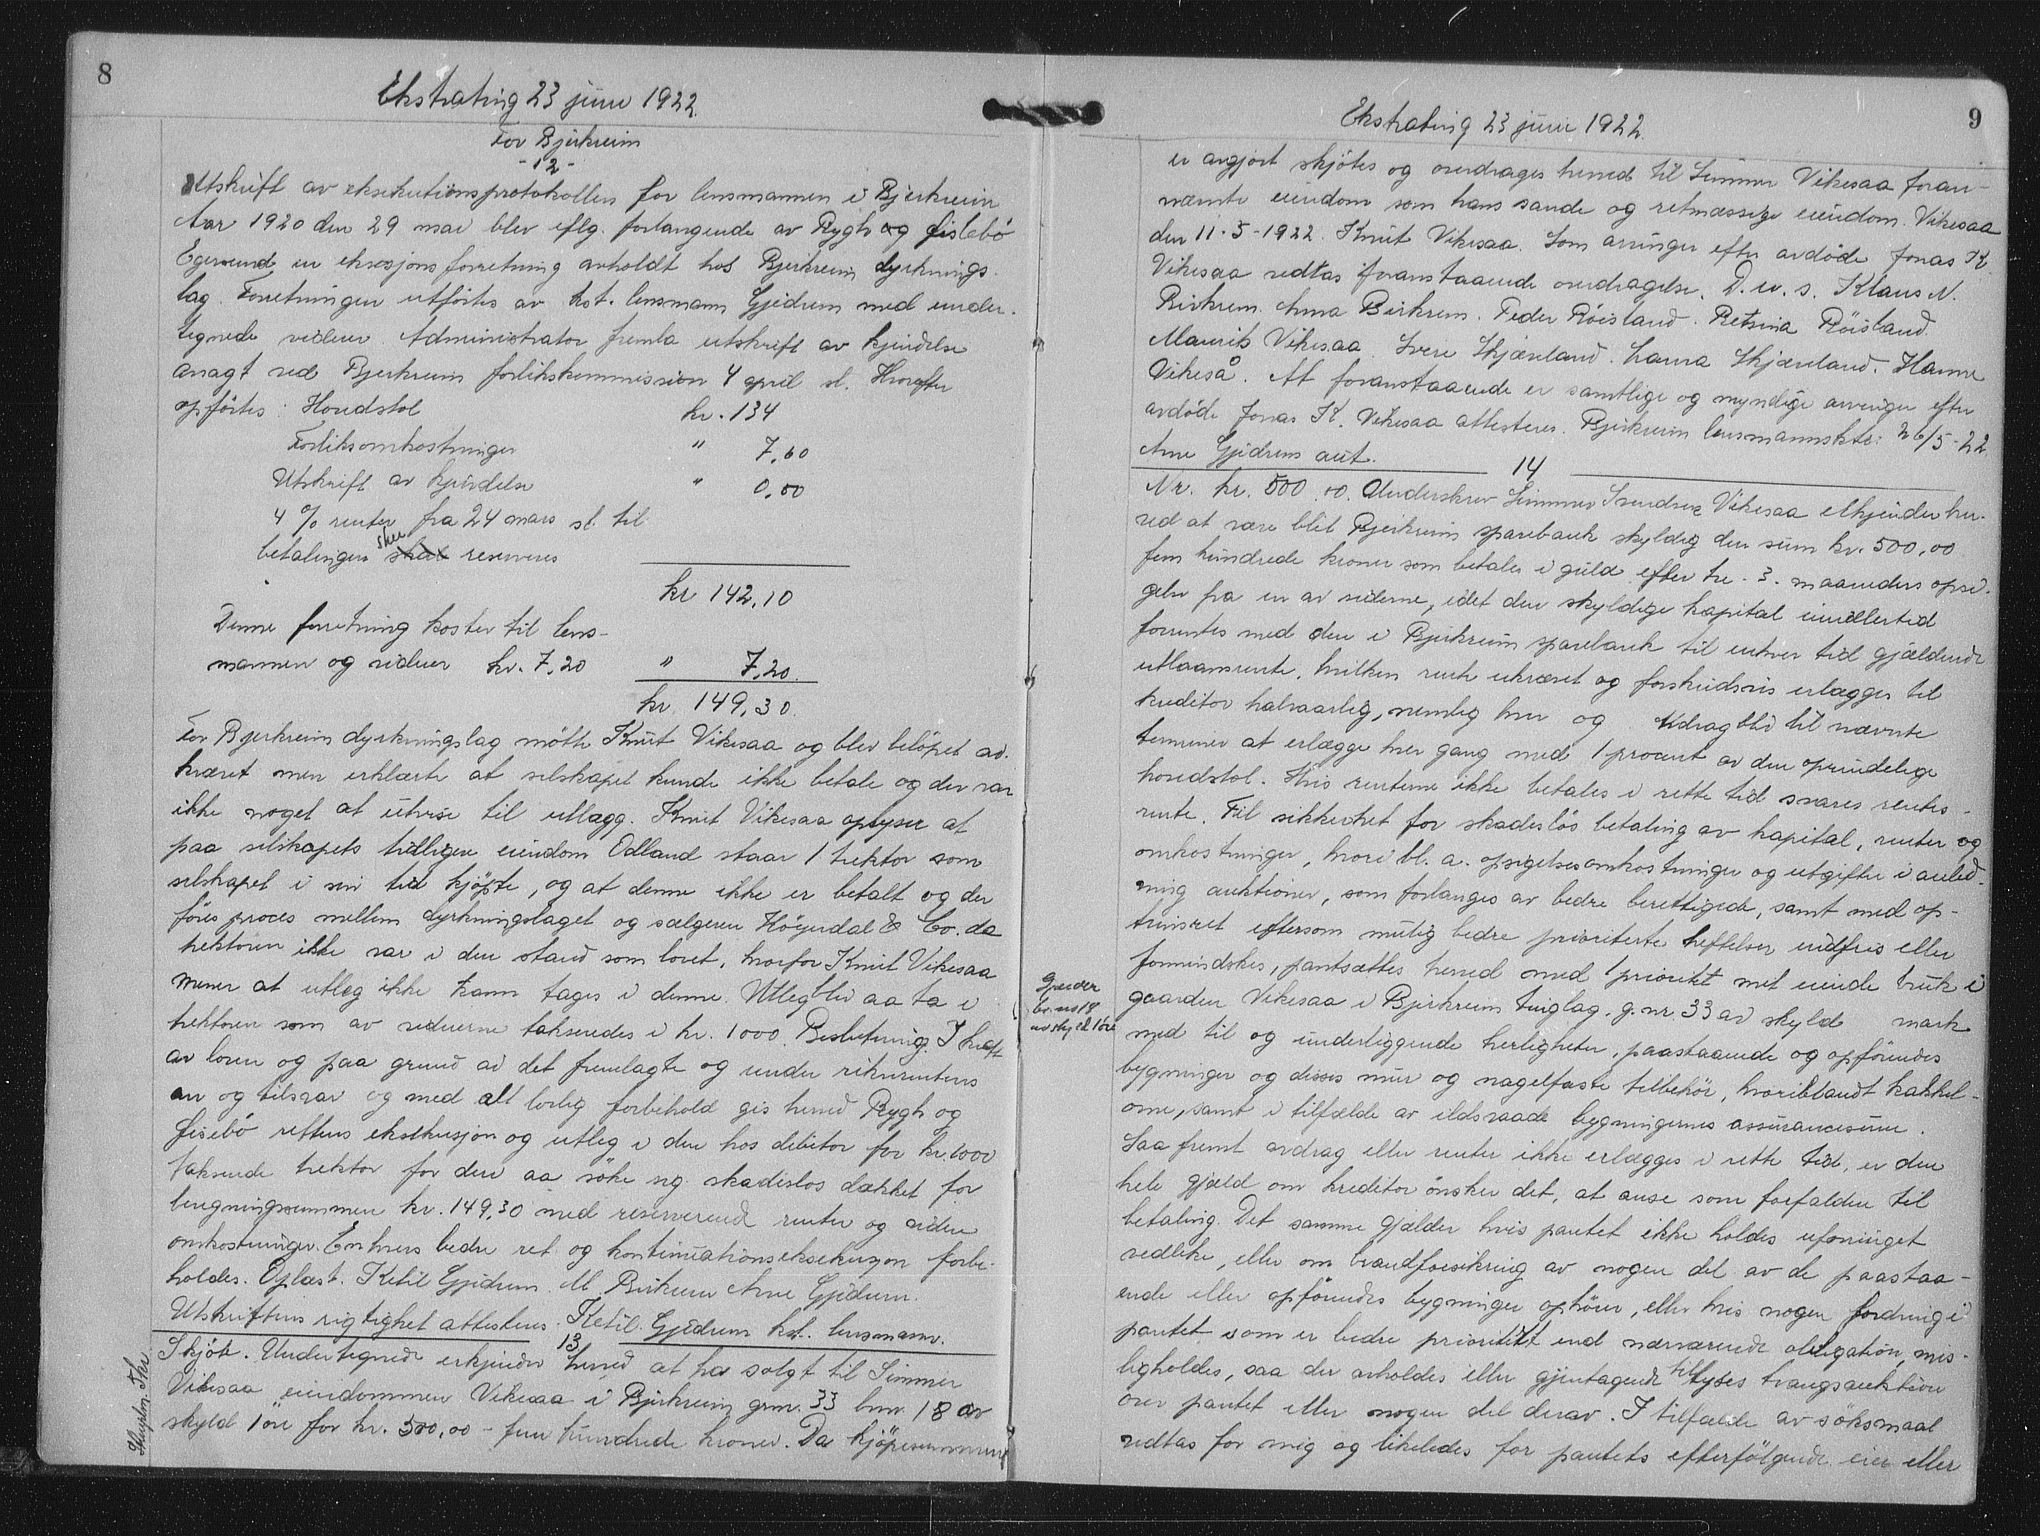 8
Ekstrating 23 juni 1922.
For Bjerkreim
-12-
Utskrift av eksekutionsprotokollen for lensmannen i Bjerkreim
Aar 1920 den 29 mai blev eflg. forlangende av Rygh og Gislebö
Egersund en eksesjonsforretning avholdt hos Bjerkreim dyrknings-
lag. Forretningen utförtes av kst. lensmann Gjedrem med under-
tegnede vidner. Administrator fremla utskrift av kjendelse
avsagt ved Bjerkreim forlikskommission 4 april sl. Hvorefter
opförtes: Hovedstol kr. 134
Forliksomkostninger " 7,60
Utskrift av kjendelse " 0,50
4 % renter fra 24 mars sl. til
betalingen sker skal reserveres
kr 142,10
Denne forretning koster til lens-
mannen og vidner kr. 7,20 " 7,20
kr 149,30
For Bjerkreim dyrkningslag mötte Knut Vikesaa og blev belöpet av-
krævet men erklærte at selskapet kunde ikke betale og der var
ikke noget at utvise til utlægg. Knut Vikesaa oplyser at
paa selskapets tidligere eiendom Odland staar 1 traktor som
selskapet i sin tid kjöpte, og at denne ikke er betalt og der
föres proces mellem dyrkningslaget og sælgeren Höyerdal & Co. da
traktoren ikke var i den stand som lovet, hvorfor Knut Vikesaa
mener at utlæg ikke kann tages i denne. Utleg blev aa ta i
traktoren som av vidnerne takseredes i kr. 1000. Beslutning. I kraft
av loven og paa grund av det fremlagte og under rekvirentens
an og tilsvar og med alt lovlig forbehold gis herved Rygh og
Gislebö rettens eksekusjon og utleg i den hos debitor for kr 1000
takserede traktor for deri aa söke sig skadeslos dækket for
beregningssummen kr. 149,30 med reserverende renter og videre
omkostninger. Enhvers bedre ret og kontinuationseksekusjon forbe-
holdes. Oplæst. Ketil Gjedrem. M. Birkrem Arne Gjedrem.
Utskriftens rigtighet attesteres. Ketil Gjedrem kst. lensmann.
13
Skjöte. Undertegnede erkjender herved at ha solgt til Simmer
Vikesaa eiendommen Vikesaa i Bjerkreim grnr. 33 bnr. 18 av
skyld 1 öre for kr. 500,00 - fem hundrede kroner. Da kjöpesummen
9
Ekstrating 23 juni 1922.
er avgjort skjötes og overdrages herved til Simmer Vikesaa foran-
nævnte eiendom som hans sande og retmæssige eiendom. Vikesaa
den 11-5-1922. Knut Vikesaa. Som arvinger efter avdöde Jonas K.
Vikesaa vedtas foranstaaende overdragelse. D. u. s. Klaus N.
Birkrem. Anna Birkrem. Peder Röisland. Retsina Röisland.
Maurits Vikesaa. Sven Skjæveland. Laura Skjæveland. Hanne
Vikeså. At foranstaaende er samtlige og myndige arvinger efter
avdöde Jonas K. Vikesaa attesteres. Bjerkreim lensmannsktr: 26/5-22
Arne Gjedrem aut.
14
Nr. kr. 500.00. Underskrev Simmer Svendsen Vikesaa erkjender her-
ved at være blit Bjerkreim sparebank skyldig den sum kr. 500,00
fem hundrede kroner som betales i guld efter tre - 3 - maaneders opsi-
gelse fra en av siderne, idet den skyldige kapital imidlertid
forrentes med den i Bjerkreim sparebank til enhver tid gjældende
utlaansrente, hvilken rente ukrævet og forskudsvis erlægges til
kreditor halvaarlig, nemlig hver og Avdrag blir til nævnte
terminer at erlægge hver gang med 1 procent av den oprindelige
hovedstol. Hvis renterne ikke betales i rette tid svares rentes-
rente. Til sikkerhet for skadeslös betaling av kapital, renter og
omkostninger, hvori bl. a. opsigelsesomkostninger og utgifter i anled-
ning auktioner, som forlanges av bedre berettigede, samt med op-
trinsret eftersom mulig bedre prioriterte heftelser indfris eller
formindskes, pantsættes herved med 1 prioritet mit eiende bruk i
gaarden Vikesaa i Bjerkreim tinglag, g.nr. 33 av skyld mark
med til og underliggende herligheter, paastaaende og opförendes
bygninger og disses mur og nagelfaste tilbehör, hvoriblandt kakkel-
ovne, samt i tilfælde av ildsvaade bygningernes assurancesum.
Saa fremt avdrag eller renter ikke erlægges i rette tid, er den
hele gjæld om kreditor önsker det, at anse som forfalden til
betaling. Det samme gjælder hvis pantet ikke holdes uforringet
vedlike, eller om brandforsikring av nogen del av de paastaa-
ende eller opförendes bygninger ophörer, eller hvis nogen fordring i
pantet, som er bedre prioritert end nærværende obligation, mis-
ligholdes, saa der avholdes eller gjentagende tillyses tvangsauktion
over pantet eller nogen del derav. I tilfælde av söksmaal
vedtas for mig og likeledes for pantets efterfölgende eier eller
br. no 18
av skyld 1 öre